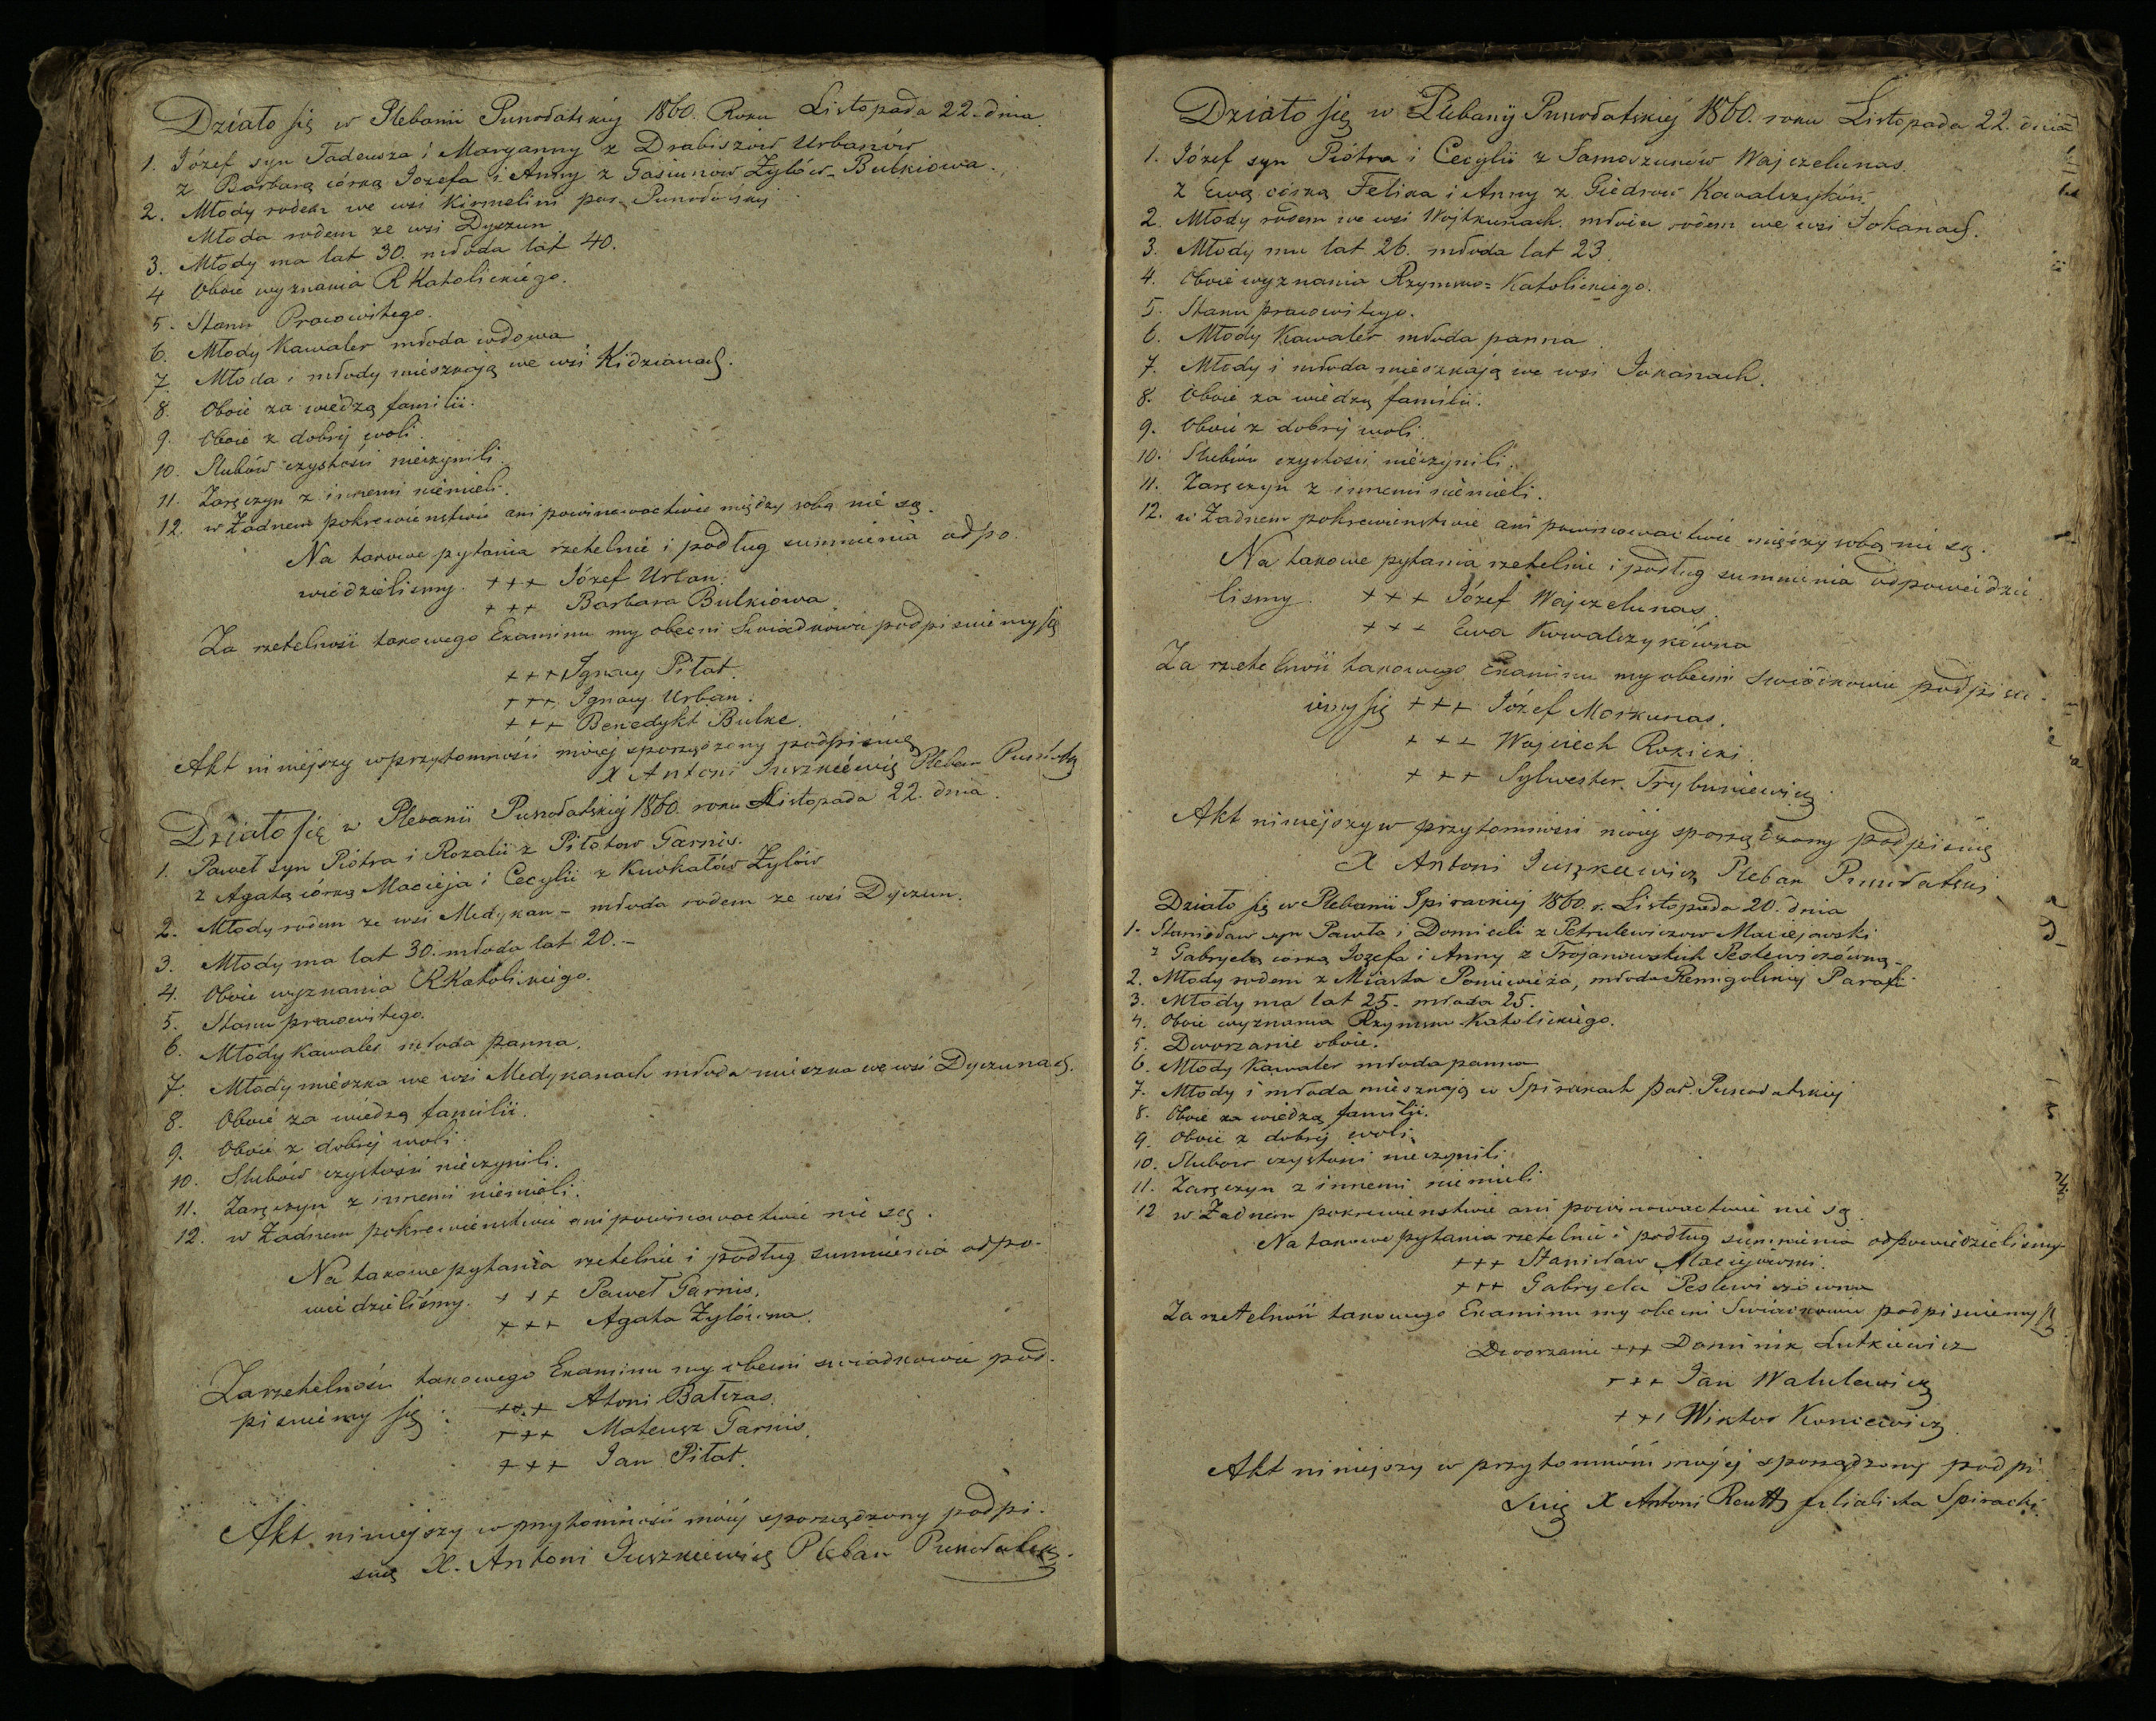 Działo się w Plebanii Punodatskiéj 1860. Roku Listopada 22. dnia
1. Józef syn Tadeusza i Maryanny z Drabiszów Urbanów
z Barbarą córką Jozefa i Anny z Gasiunów Zylów- Bulkiowa.
2. Młody rodem we wsi Kirmelini par.
Młoda rodem ze wsi Dyczun
3. Młody ma lat 30. młoda lat 40.
4 Oboie wyznania R Katolickiégo.
5. Stanu Pracowitego.
6. Młody Kawaler młoda wdowa
7 Młoda i młody mieszkają we wsi Kidzianach.
8. Oboie za wiedzą familii.
9. Oboie z dobréj woli.
10. Slubów czystosci nieczynili.
11. Zaręczyn z innemi niemieli.
12. w Żadnem pokrewieństwie ani powinowactwie między sobą nie są.
Na takowe pytania rzetelnie i podług summienia odpo-
wiedzielismy. +++ Józef Urban.
+++ Barbara Bulkiowa
Za rzetelnosć takowego Examinu my obecni Swiadkowie podpisuiemy się
+++ Ignacy Piłat.
+++ Ignacy Urban.
+++ Benedykt Bulke.
Akt niniejszy w przytomności mojej sporządzony podpisuię
X Antoni Juszkiéwicz Pleban
Działo się w Plebanii Punodatskiéj 1860. roku Listopada 22. dnia.
1. Paweł syn Piótra i Rozalii z Piłatow Garnis.
z Agatą córką Macieja i Cecylii z Kuokałów Zylów
2. Młody rodem ze wsi Medykan - młoda rodem ze wsi Dyczun.
3. Młody ma lat 30. młoda lat 20.-
4. Oboie wyznania R Katolickiego.
5. Stanu pracowitego.
6. Młody Kawaler młoda panna.
7. Młody mieszka we wsi Medykanach młoda mieszka we wsi Dyczunach.
8. Oboie za wiedzą familii.
9. Oboie z dobréj woli.
10. Slubów czystości nieczynili.
11. Zaręczyn z innemi niemieli.
12. w Żadnem pokrewieństwie ani powinowactwie nie są.
Na takowe pytania rzetelnie i podług summienia odpo-
wiedzieliśmy. +++ Paweł Garnis.
+++ Agata Zylówna.
Za rzetelnosć takowego Examinu my obecni swiadkowie pod-
pisuiemy się: +++ Atoni Bałczas.
+++ Mateusz Garnis.
+++ Jan Piłat.
Akt niniejszy w przytomności moiéj sporządzony podpi-
suię X. Antoni Juszkiewicz Pleban
Działo się w Plebanij Punodatskiéj 1860. roku Listopada 22. dnia
1. Józef syn Piótra i Cecylii z Samoszunów Wajczelunas.
z Ewą córką Felixa i Anny z Giedrow
2. Młody rodem we wsi Wojtkunach. młoda rodem we wsi Jokanach.
3. Młody ma lat 26. młoda lat 23.
4. Oboie wyznania Rzymsko= Katolickiego.
5. Stanu pracowitego.
6. Młody Kawaler młoda panna.
7. Młody i młoda mieszkają we wsi Jokanach.
8. Oboie za wiedzą familii.
9. Oboie z dobréj woli.
10. Slubów czystosci nieczynili.
11. Zaręczyn z innemi niemieli.
12. w Żadnem pokrewienstwie ani powinowactwie między sobą nie są.
Na takowe pytania rzetelnie i podług summienia odpowiedzie
lismy. +++ Józef Wajczelunas
+++ Ewa Kowalczykówna
Za rzetelnosć takowego Examinu my obecni Swiadkowie podpisu-
iemy się +++ Józef Morkunas.
+++ Wojciech Rozicki.
+++ Sylwester Trybuniewicz
Akt niniejszy w przytomnosci moiéj sporządzony podpisuię
X Antoni Juszkiewicz Pleban Punodatski
Działo się w Plebanii Spirackiéj 1860. r. Listopada 20. dnia
1. Stanisław syn Pawła i Domiceli z Petrulewiczow Maciejowski
z Gabryelą córką Jozefa i Anny z Trojanowskich Peslewiczówną-
2. Młody rodem z Miasta Poniewieża, młoda Remigolskiéj Parafi.
3. Młody ma lat 25. młoda 25.
4. Oboie wyznania Rzymsko-Katolickiégo.
5. Dworzanie oboie.
6. Młody Kawaler młoda panna
7. Młody i młoda mieszkają w Spirakach par. Punodatskiéj
8. Oboie za wiedzą familji.
9. Oboie z dobréj woli.
10. Slubow czystosci nieczynili
11. Zaręczyn z innemi niemieli
12 w Żadném pokrewieństwie ani powinowactwie nie są.
Na takowe pytania rzetelnie i podług summienia odpowiedzielismy-
+++ Stanisław Maciejowski.
+++ Gabryela Peslewiczówna
Za rzetelnosć takowego Examinu my obecni Swiadkowie podpisuiemy się
Dworzanie +++ Dominik Lutkiewicz
+++ Jan Watulewicz
+++ Wiktor Koncewicz
Akt niniejszy w przytomnosci mojéj sporządzony podpi
suię X Antoni Reutt filialista Spiracki.